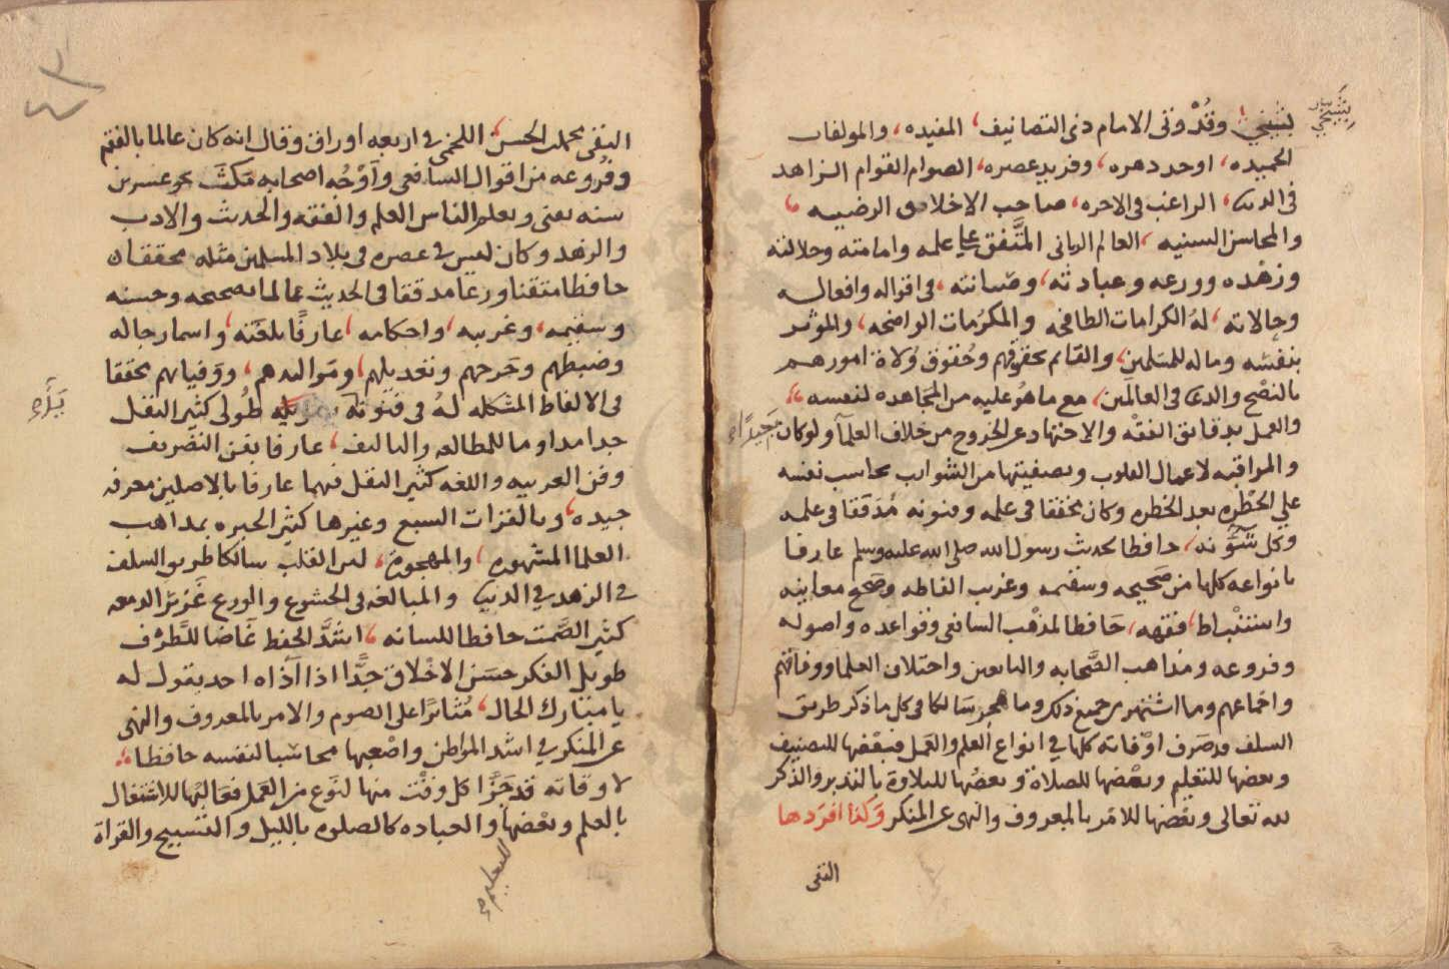 بشيخي وقدوتي الامام ذي التصانيف المفيده والمولفات
الحميده اوحد دهره وفريد عصره الصوام القوام الزاهد
في الدنيا الراغب في الاخره صاحب الاخلاق الرضيه
والمحاسن السنيه العالم الرباني المتفق على علمه وامامته وجلالته
وزهده وورعه وعبادته وصيانته في اقواله وافعاله
وحالاته له الكرامات الطافحه والمكرمات الواضحه والموثر
بنفسه وماله للمسلمين والقائم بحقوقهم وحقوق ولاة امورهم
بالنصح والدعا في العالمين مع ما هو عليه من المجاهده لنفسه
والعمل بدقائق الفقه والاجتهاد على الخروج من خلاف العلمآ ولو كان بعيدًا
والمراقبه لاعمال القلوب وتصفيتها من الشوائب يحاسب نفسه
علي الخطره بعد الخطره وكان محققا في علمه وفنونه مدققا في علمه
وكل شؤونه حافظا لحديث رسول الله صلى الله عليه وسلم عارفا
بانواعه كلها من صحيحه وسقيمه وغريب الفاظه وصحيح معانيه
واستنباط فقهه حافظا لمذهب الشافعي وقواعده واصوله
وفروعه ومذاهب الصحابه والتابعين واختلاف العلما ووفاقهم
واجماعهم وما اشتهر من جميع ذلك وما هجر سالكا في كل ما ذكر طريق
السلف قد صرف اوقاته كلها في انواع العلم والعمل فبعضها للتصنيف
وبعضها للتعليم وبعضها للصلاة وبعضها للتلاوة بالتدبر والذكر
لله تعالى وبعضها للامر بالمعروف والنهي عن المنكر وكذا افردها
التقي
التقي محمد بن الحسن اللخمي في اربعه اوراق وقال انه كان عالما بالفقه
وفروعه من اقوال الشافعي وآوجه اصحابه مكث نحو عشرين
سنه يفتي ويعلم الناس العلم والفقه والحديث والادب
والزهد وكان ليس في عصره في بلاد المسلمين مثله محققا
حافظا متقنا ورعا مدققا في الحديث عالما بصحيحه وحسنه
وسقيمه وغريبه واحكامه عارفًا بلغته واسما رجاله
وضبطهم وجرحهم وتعديلهم ومواليدهم ووفياتهم محققا
في الالفاظ المشكله له في فنونه طولى كثير النقل
جدا مداوما للمطالعه والتاليف عارفا بفن التصريف
وفن العربيه واللغه كثير النقل فيهما عارفا بالاصلين معرفه
جيده وبالقراات السبع وغيرها كثير الخبره بمذاهب
العلما المشهوره والمهجوره لين القلب سالكا طريق السلف
في الزهد في الدنيا والمبالغه في الخشوع والورع غزير الدمعه
كثير الصمت حافظا للسانه اشدَّ الحفظ غاضا للطرف
طويل الفكر حسن الاخلاق جدًّا اذا آذاه احد يقول له
يا مبارك الحال مثابرًا على الصوم والامر بالمعروف والنهي
عن المنكر في اشد المواطن واصعبها محاسبا لنفسه حافظا
لاوقاته قد جزّأ كل وقت منها لنوع من العمل فغالبها للاشتغال
بالعلم وبعضها والعباده كالصلوه بالليل والتسبيح والقراة
للتعليم